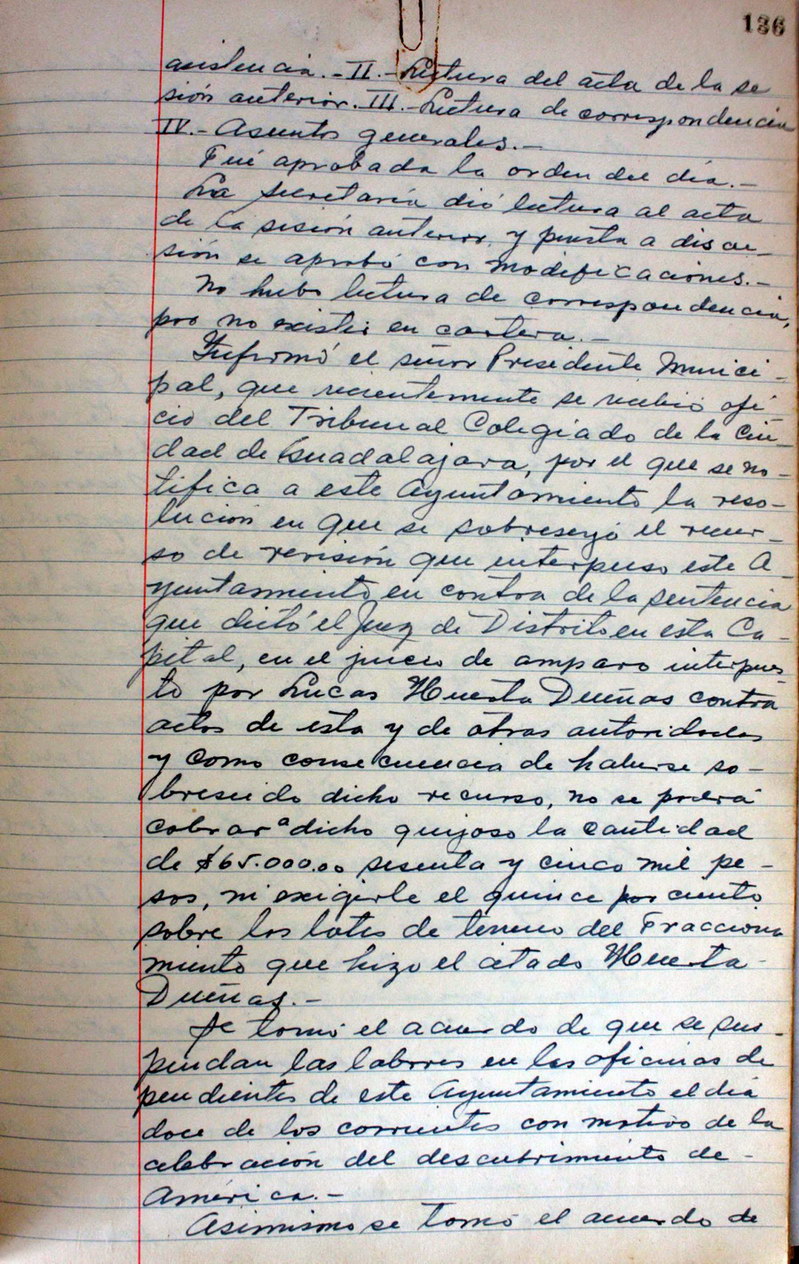 136
asistencia.-II.-Lectura del acta de la se
sión anterior.III.-Lectura de correspondencia
IV.- Asuntos generales.-
Fué aprobada la orden del día.-
La Secretaría dió lectura al acta
de la sesión anterior y puesta a discu-
sión se aprobó con modificaciones.-
No hubo lectura de correspondencia,
por no existir en cartera.-
Informó el señor Presidente Munici-
pal, que recientemente se recibió ofi
cio del Tribunal Colegiado de la Ciu-
dad de Guadalajara, por el que se no-
tifica a este Ayuntamiento la reso-
lución en que se sobreseyó el recur-
so de revisión que interpuso este A-
yuntamiento en contra de la sentencia
que dictó el Juez de Distrito en esta Ca-
pital, en el juicio de amparo interpues
to por Lucas Huerta Dueñas contra
actos de esta y de otras autoridades
y como consecuencia de haberse so-
breseido dicho recurso, no se podrá
cobrar a dicho quejoso la cantidad
de $65.000.00 sesenta y cinco mil pe-
sos, ni exigirle el quince por ciento
sobre los lotes de terreno del Fracciona
miento que hizo el citado Huerta-
Dueñas.-
Se tomó el acuerdo de que se sus-
pendan las labores en las oficinas de
pendientes de este Ayuntamiento el día
doce de los corrientes con motivo de la
celebración del descubrimiento de-
América.-
Asimismo se tomó el acuerdo de